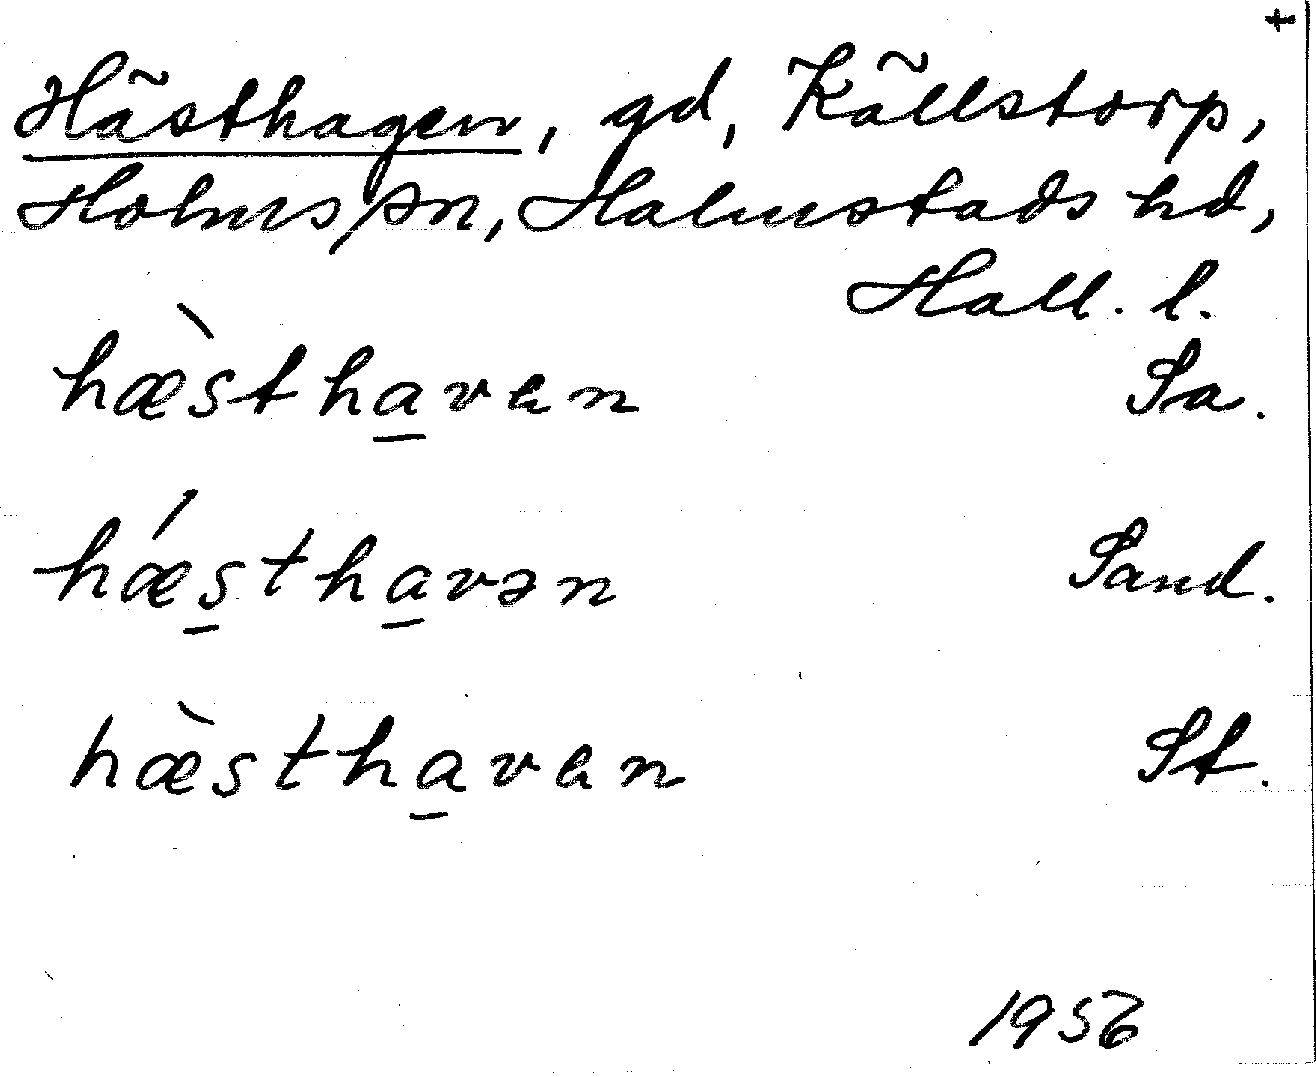 t
Hästhagen, gd, Källstorp,
Holms sn, Halmstads hd,
Hall. l.
hæ̀stha̲ven Sa.
hǽs̲tha̲vən Sand.
hæ̀stha̲ven St.
1956